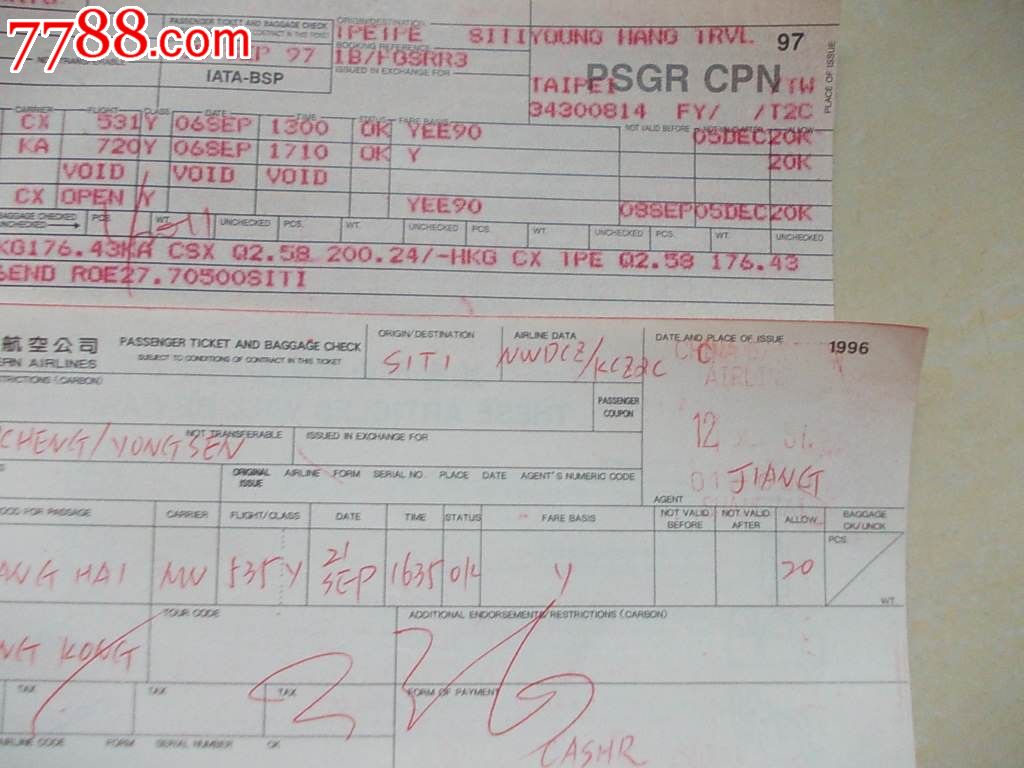 7788.com
PASSENGER TICKET AND BAGGAGE CHECK
ORIGIN/DESTINATION
TPETPE SITI YOUNG HANG TRVL 97
BOOKING REFERENCE
97 1B/FGSRR3
ISSUED IN EXCHANGE FOR
IATA-BSP
PSGR CPN
TAIPEI TW
PLACE OF ISSUE
34300814 FY/ /T2C
CARRIER FLIGHT CLASS DATE TIME STATUS FARE BASIS NOT VALID BEFORE NOT VALID AFTER ALLOW
CX 531 Y 06SEP 1300 OK YEE90 05DEC 20K
KA 720 Y 06SEP 1710 OK Y 20K
VOID VOID VOID
CX OPEN Y YEE90 08SEP 05DEC 20K
BAGGAGE CHECKED UNCHECKED PCS. WT. UNCHECKED PCS. WT. UNCHECKED PCS. WT. UNCHECKED PCS. WT. UNCHECKED
KG176.43KA CSX Q2.58 200.24/-HKG CX TPE Q2.58 176.43
END ROE27.70500SITI
航空公司
ERN AIRLINES
PASSENGER TICKET AND BAGGAGE CHECK
SUBJECT TO CONDITIONS OF CONTRACT IN THIS TICKET
ORIGIN/DESTINATION
SITI
AIRLINE DATA
NWDCZ/KCZ2C
DATE AND PLACE OF ISSUE 1996
TRICTIONS (CARBON)
PASSENGER COUPON
12
NOT TRANSFERABLE
CHENG/YONGSEN
ISSUED IN EXCHANGE FOR
JIANG
ORIGINAL ISSUE AIRLINE FORM SERIAL NO. PLACE DATE AGENT'S NUMERIC CODE
AGENT
OOD FOR PASSAGE CARRIER FLIGHT/CLASS DATE TIME STATUS FARE BASIS NOT VALID BEFORE NOT VALID AFTER ALLOW BAGGAGE CK/UNCK
PCS.
ANG HAI MU 535 Y 21 SEP 1635 OK Y 20
WT.
TOUR CODE
ADDITIONAL ENDORSEMENTS/RESTRICTIONS (CARBON)
NG KONG
TAX TAX TAX
FORM OF PAYMENT
AIRLINE CODE FORM SERIAL NUMBER CK
CASHR